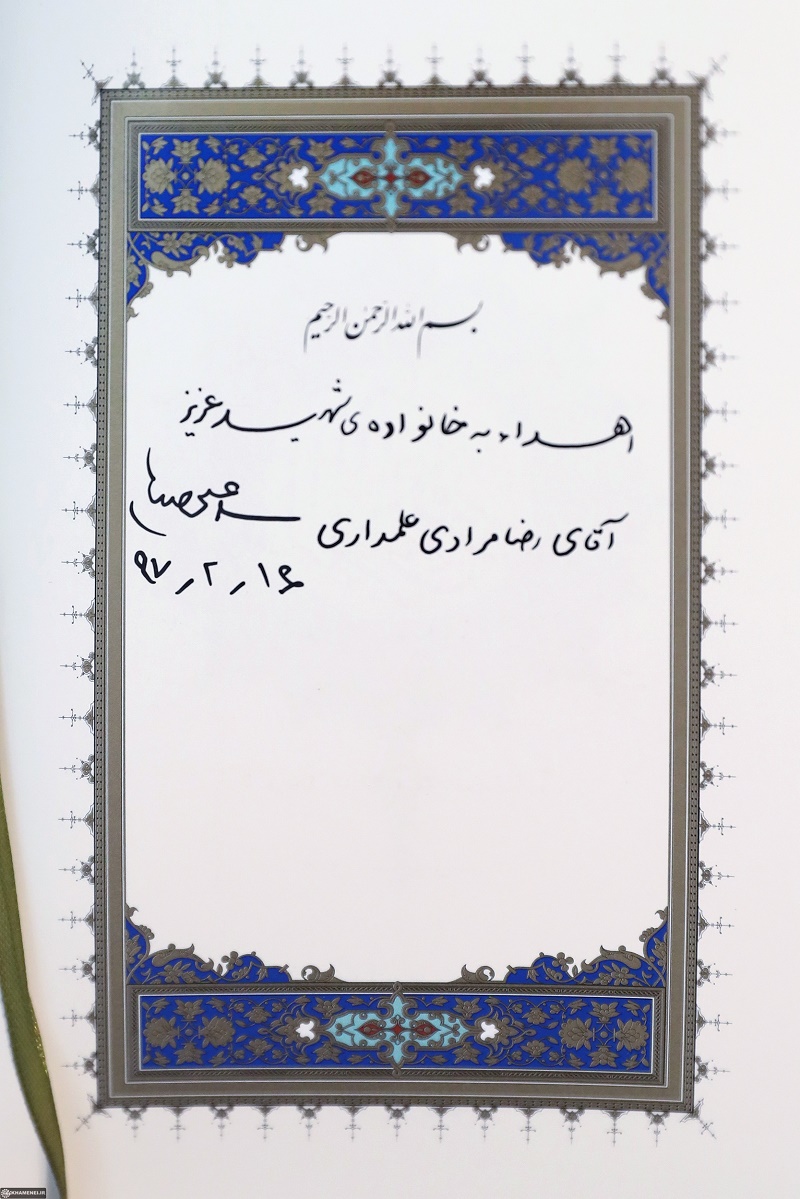 بسم الله الرحمن الرحیم
اهداء به خانواده‌ی شهید عزیز
آقای رضا مرادی علمداری
۹۷٫۲٫۱۶
KHAMENEI.IR